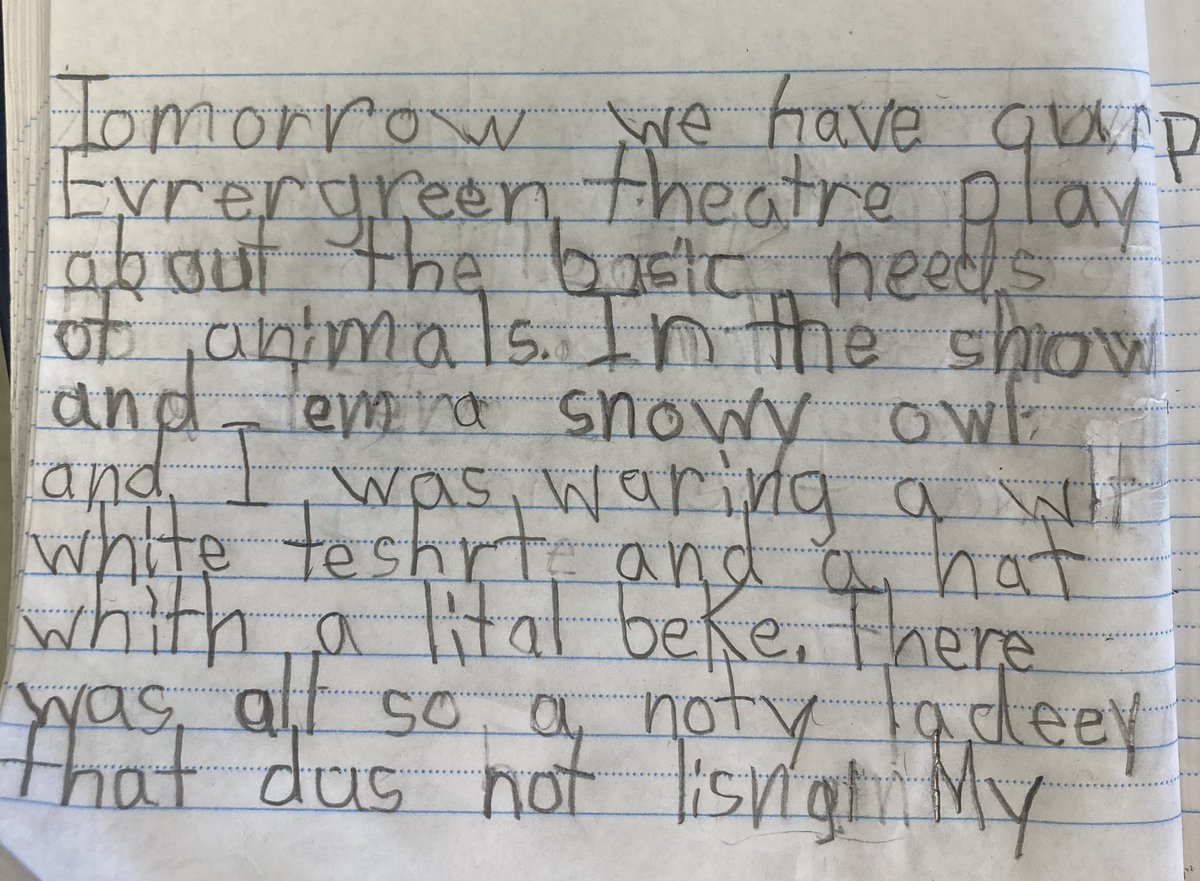 Tomorrow we have aur
Evrergreen theatre play
about the basic needs
of animals. In the show
and I em a snowy owl.
and I was waring a
white teshrt and a hat
whith a lital beke. There
was all so a noty ladeey
that dus not My